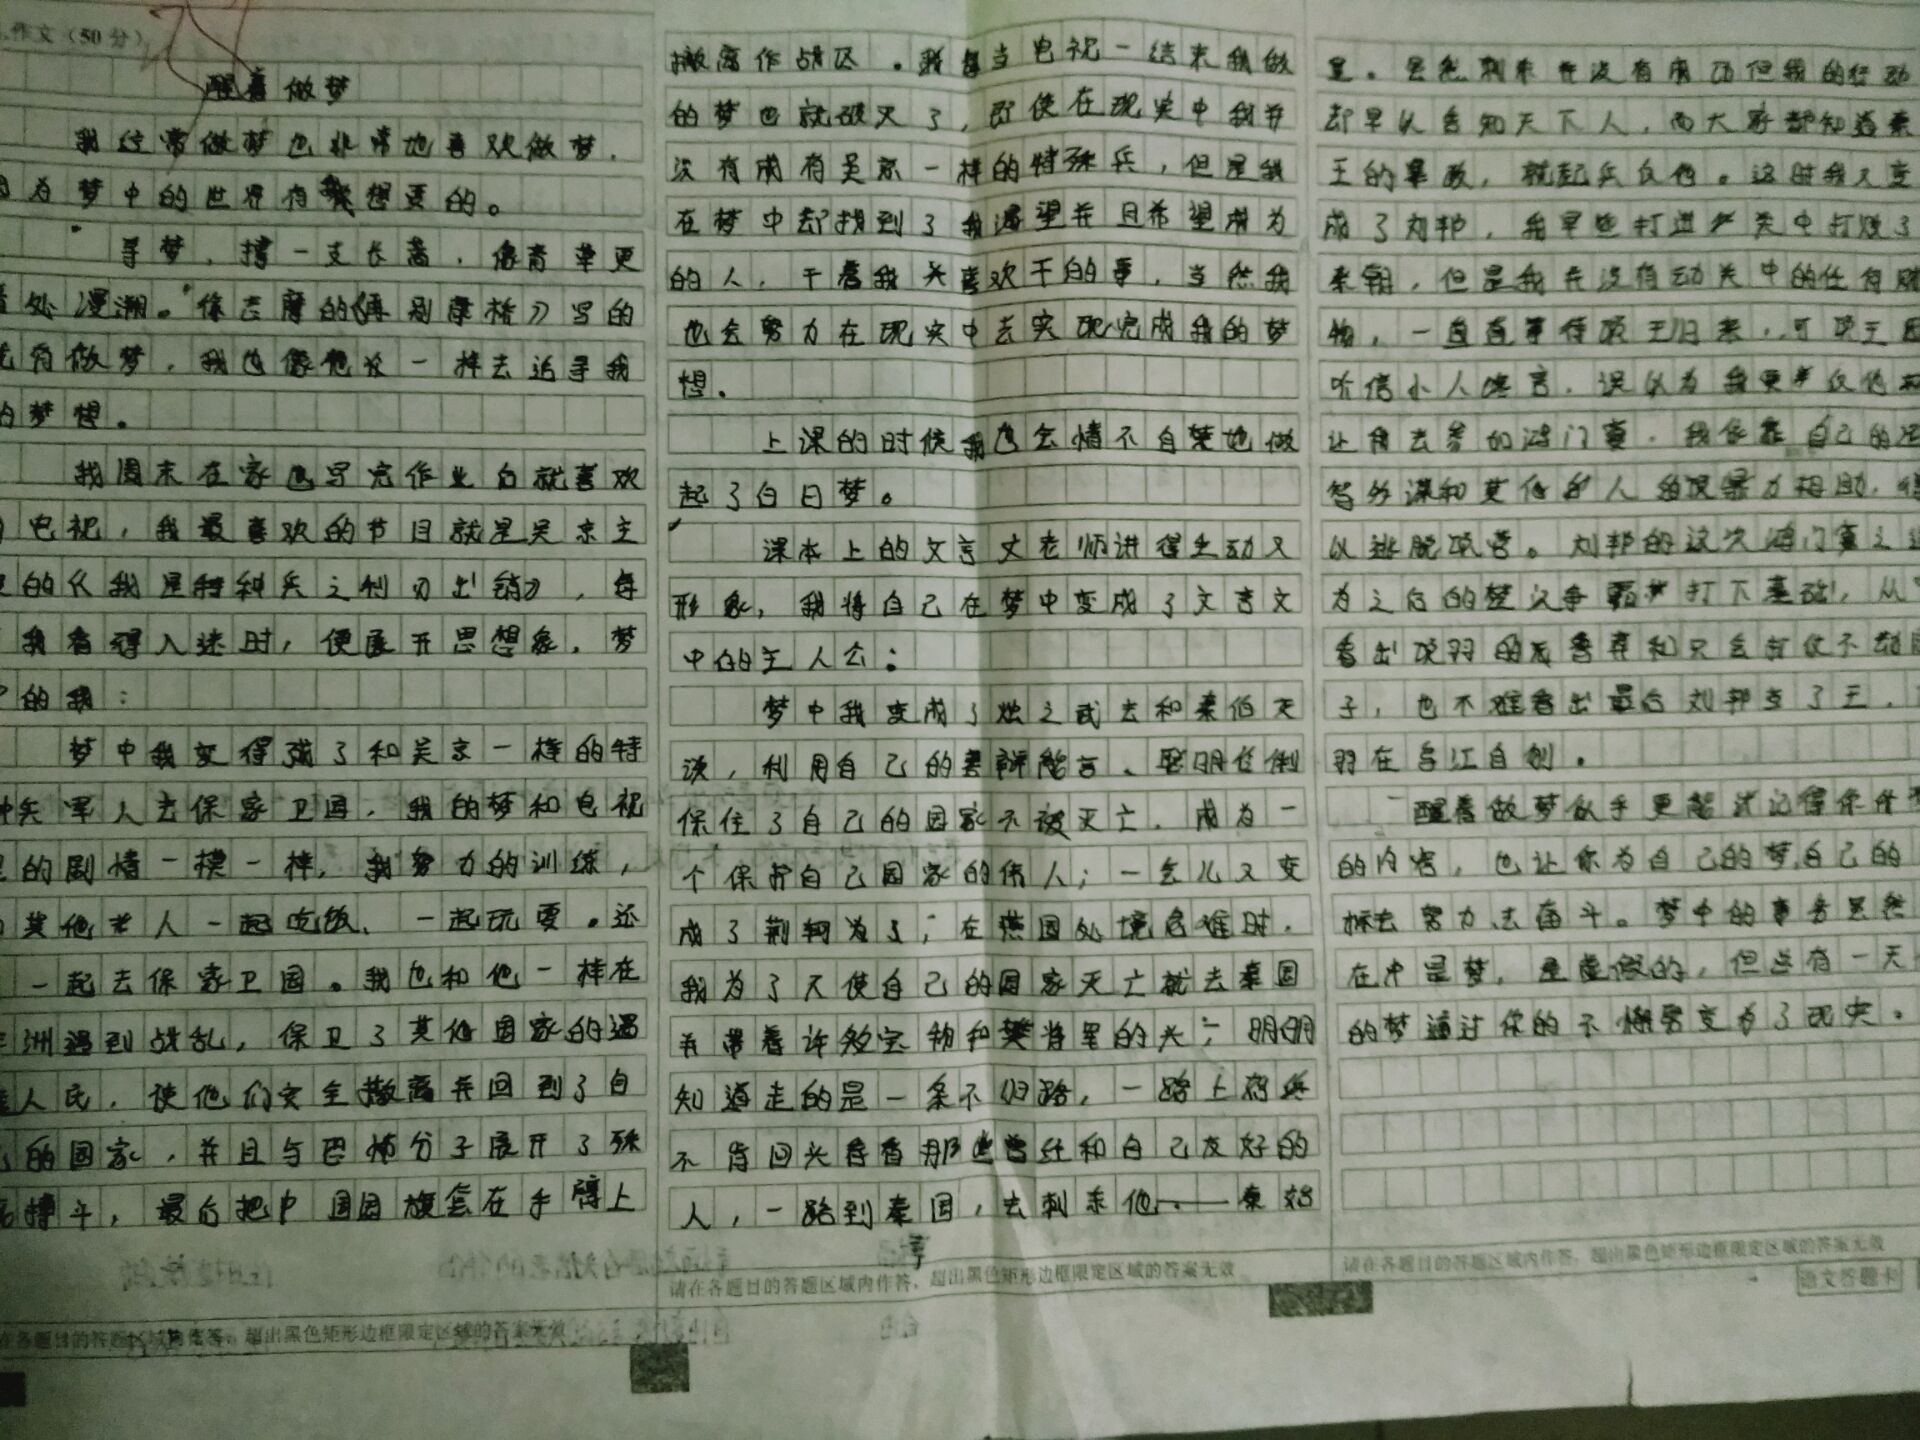 作文（50分）
醒着做梦
我经常做梦也非常地喜欢做梦，
为梦中的世界有我想要的。
寻梦，撑一支长蒿，像青草更
处漫溯。"徐志摩的《再别康桥》写的
有做梦，我也像他 一样去追寻我
的梦想。
我周末在家也写完作业后就喜欢
电视，我最喜欢的节目就是吴京主
的《我是特种兵之利刃出销》，每
我看得入迷时，便展开思想象。梦
的我：
梦中我变得强了和吴京一样的特
兵军人去保家卫国，我的梦和电视
的剧情一模一样，我努力的训练，
其他 人一起吃饭、一起玩耍。还
一起去保家卫国。我也和他一样在
洲遇到战乱，保卫了其他国家的遇
人民，使他们安全撤离并回到了自
的国家，并且与恐怖分子展开了殊
搏斗，最后把中国国旗套在手臂上
撤离作战区。我想当电视一结束我做
的梦也就破灭了，即使在现实中我并
没有成有吴京一样的特殊兵，但是我
在梦中却找到了我渴望并且希望成为
的人，干着我兴喜欢干的事，当然我
也会努力在现实中去实现完成我的梦
想。
上课的时候我也会情不自禁地做
起了白日梦。
课本上的文言文老师讲得生动又
形象，我将自己在梦中变成了文言文
中的主人公：
梦中我变成了烛之武去和秦伯天
谈，利用自己的善辩能言、聪明伎俩
保住了自己的国家不被灭亡，成为一
个保护自己国家的伟人；一会儿又变
成了荆轲为了；在燕国处境危难时，
我为了不使自己的国家灭亡就去秦国
并带着许多宝物和樊将军的头；明明
知道走的是一条不归路，一路上
不肯回头看看那些曾经和自己友好的
人，一路到秦国，去刺杀他——秦始
皇。虽然刺杀并没有成功但我的行动
却早以告知天下人，而大家都知道秦
王的暴政，就起兵反他。这时我又变
成了刘邦，我早些打进 关中打败了
秦朝，但是我并没有动关中的任何财
物，一直 等待项王归来，可项王
听信小人谗言，误以为我要 反他
让我去参加鸿门宴，我依靠自己的
智 谋和其他 人 相助，得
以逃脱 营。刘邦的这次鸿门宴之
为之后的楚汉争霸 打下基础，从
看出项羽的 和只会 仗不动
子，也不难看出最后刘邦当了王，
羽在乌江自刎。
醒着做梦似乎更能 记得你
的内容，也让你为自己的梦，自己的
标去努力去奋斗。梦中的事务虽然
在 是梦，是虚假的，但总有一天
的梦通过你的不懈 变为了现实。
请在各题目的答题区域内作答，超出黑色矩形边框限定区域的答案无效
请在各题目的答题区域内作答，超出黑色矩形边框限定区域的答案无效
在各题目的答题区域内作答，超出黑色矩形边框限定区域的答案无效
语文答题卡